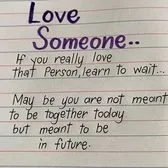 Love
Someone..
If you really love
that Person, learn to wait...
May be you are not meant
to be together today
but meant to be
in future.